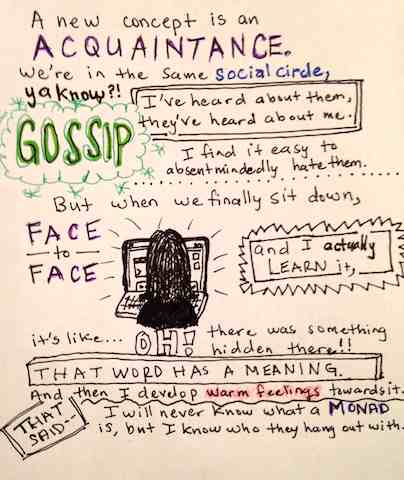 A new concept is an
ACQUAINTANCE.
We're in the same social circle,
ya know?!
I've heard about them,
they've heard about me.
GOSSIP
I find it easy to
absentmindedly hate them.
But when we finally sit down,
FACE
to
FACE
and I actually
LEARN it,
it's like... OH! there was something
hidden there!!
THAT WORD HAS A MEANING.
And then I develop warm feelings towards it.
THAT
SAID--
I will never know what a MONAD
is, but I know who they hang out with.